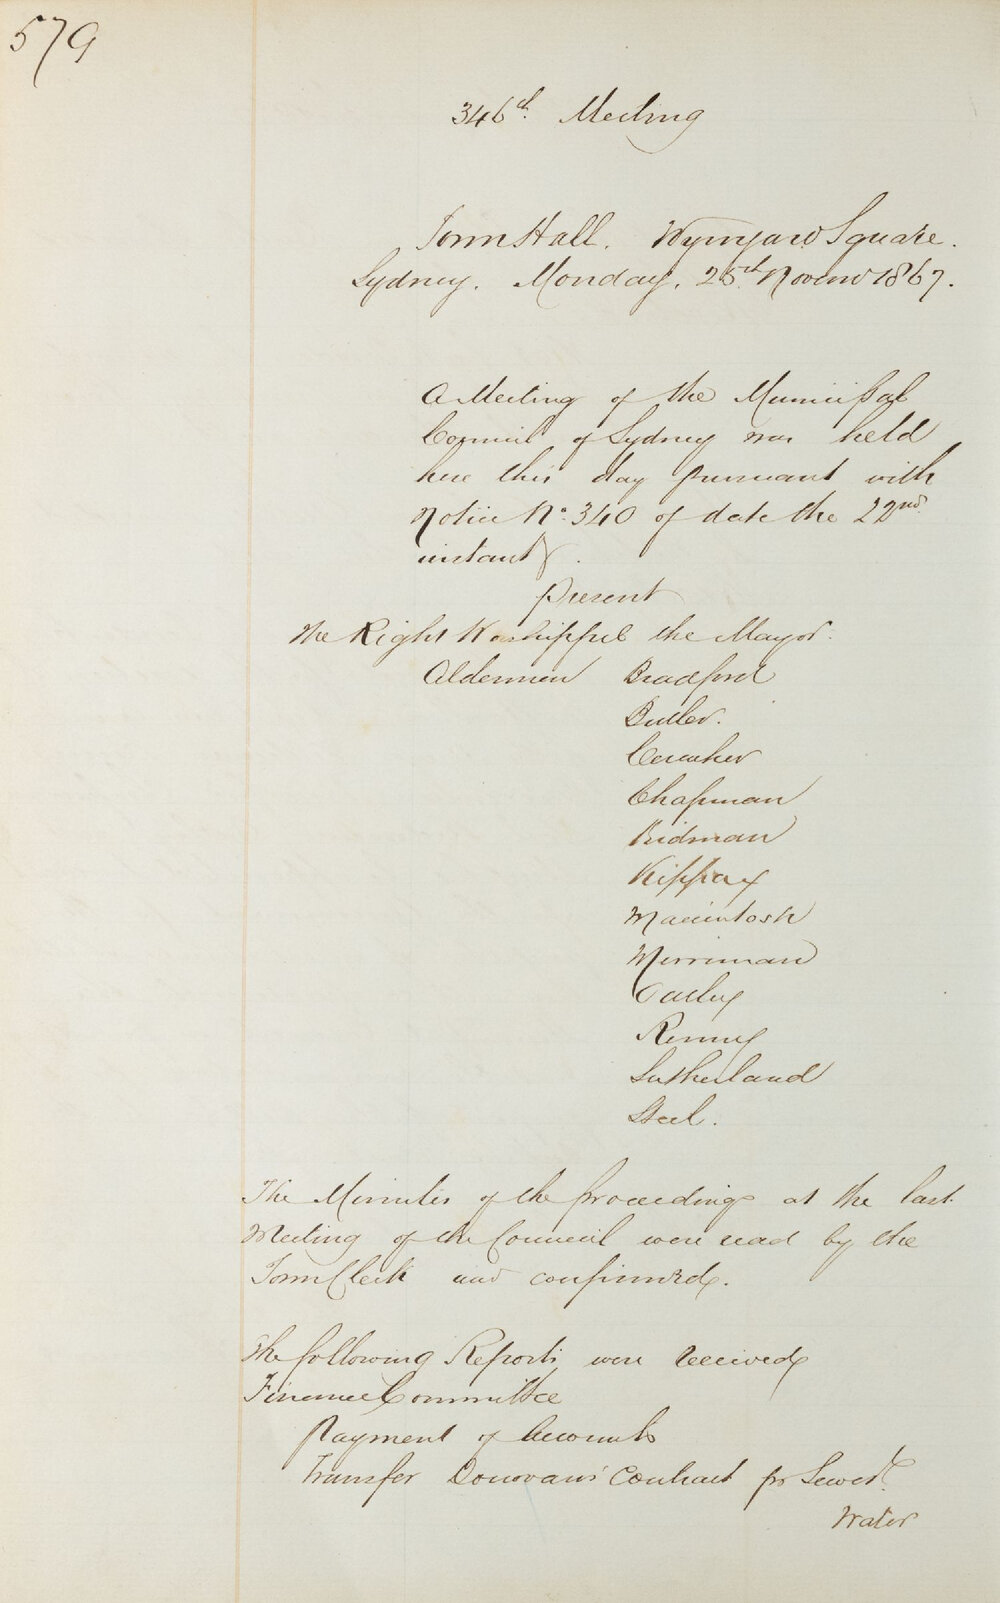 579
346th Meeting
Town Hall. Wynyard Square.
Sydney. Monday, 25th Novem 1867.
A Meeting of the Municipal
Council of Sydney was held
here this day pursuant with
Notice No. 340 of date the 22nd
instant.
Present
The Right Worshipful the Mayor.
Aldermen Bradford
Butler.
Caraher
Chapman
Hidman
Kippax
Macintosh
Merriman
Oatley
Renny
Sutherland
Steel.
The Minutes of the proceedings at the last
Meeting of the Council were read by the
Town Clerk and confirmed.
The following Reports were received
Finance Committee
Payment of Accounts
Transfer Donovans' Contract for Sewer
Water